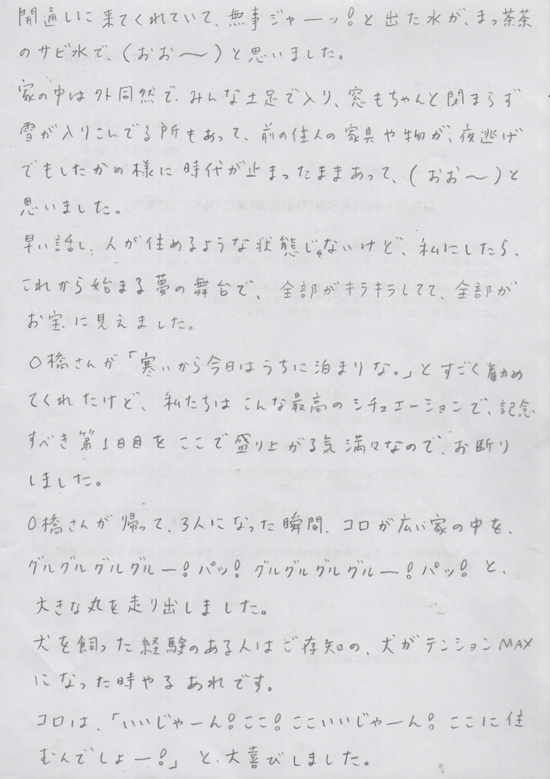 開通しに来てくれていて、無事ジャーッ!と出た水が、まっ茶茶
のサビ水で、(おお〜)と思いました。
家の中は外同然で、みんな土足で入り、窓もちゃんと閉まらず
雪が入りこんでる所もあって、前の住人の家具や物が、夜逃げ
でもしたかの様に時代が止まったままあって、(おお〜)と
思いました。
早い話し、人が住めるような状態じゃないけど、私にしたら、
これから始まる夢の舞台で、全部がキラキラしてて、全部が
お宝に見えました。
O橋さんが「寒いから今日はうちに泊まりな。」とすごく勧め
てくれたけど、私たちはこんな最高のシチュエーションで、記念
すべき第1日目をここで盛り上がる気満々なので、お断り
しました。
O橋さんが帰って、3人になった瞬間、コロが広い家の中を、
グルグルグルグルー!パッ!グルグルグルグルー!パッ!と、
大きな丸を走り出しました。
犬を飼った経験のある人はご存知の、犬がテンションMAX
になった時やるあれです。
コロは、「いいじゃーん!ここ!ここいいじゃーん!ここに住
むんでしょー!」と、大喜びしました。